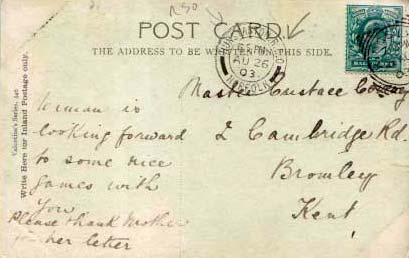 RSO
POST CARD.
THE ADDRESS TO BE WRITTEN ON THIS SIDE.
AU 26
03
Valentine's Series.
Write Here for Inland Postage only.
is
looking forward
to some nice
games with
you
Please thank Mother
for her letter
Master Eustace
2 Cambridge Rd.
Bromley
Kent